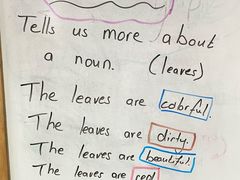 Tells us more about
a noun. (leaves)
The leaves are colorful.
The leaves are dirty.
The leaves are beautiful.
The leaves are red